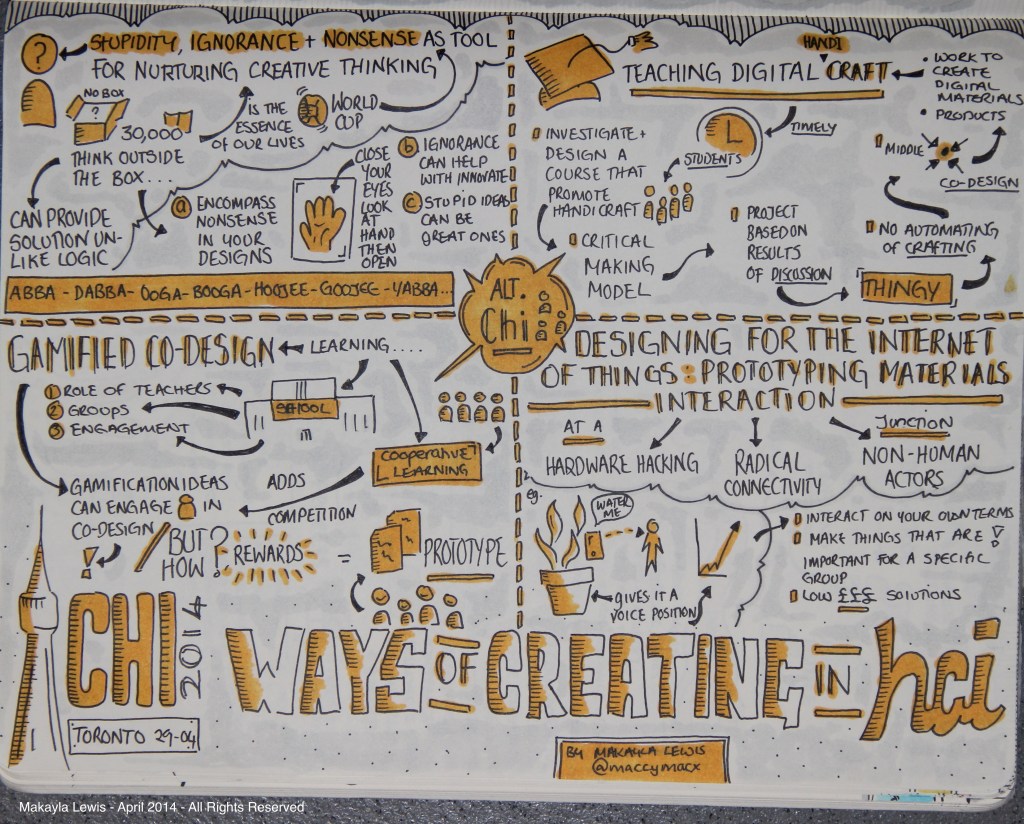 ?
STUPIDITY, IGNORANCE + NONSENSE AS TOOL
FOR NURTURING CREATIVE THINKING
NO BOX
?
30,000
THINK OUTSIDE
THE BOX...
IS THE
ESSENCE
OF OUR LIVES
WORLD
CUP
CAN PROVIDE
SOLUTION UN-
LIKE LOGIC
a ENCOMPASS
NONSENSE
IN YOUR
DESIGNS
CLOSE
YOUR
EYES
LOOK
AT
HAND
THEN
OPEN
b IGNORANCE
CAN HELP
WITH INNOVATE
c STUPID IDEAS
CAN BE
GREAT ONES
ABBA - DABBA - OOGA - BOOGA - HOOJEE - GOOJEE - YABBA...
HANDI
TEACHING DIGITAL CRAFT
• WORK TO
CREATE
DIGITAL
MATERIALS
• PRODUCTS
TIMELY
STUDENTS
INVESTIGATE +
DESIGN A
COURSE THAT
PROMOTE
HANDICRAFT
CRITICAL
MAKING
MODEL
PROJECT
BASED ON
RESULTS
OF DISCUSSION
THINGY
NO AUTOMATING
OF CRAFTING
MIDDLE
CO-DESIGN
ALT.
Chi
GAMIFIED CO-DESIGN
LEARNING....
1 ROLE OF TEACHERS
2 GROUPS
3 ENGAGEMENT
SCHOOL
COOPERATIVE
LEARNING
GAMIFICATION IDEAS
CAN ENGAGE IN
CO-DESIGN
ADDS
COMPETITION
!
BUT
HOW?
REWARDS
=
PROTOTYPE
DESIGNING FOR THE INTERNET
OF THINGS: PROTOTYPING MATERIALS
INTERACTION
AT A
Junction
HARDWARE HACKING
RADICAL
CONNECTIVITY
NON-HUMAN
ACTORS
eg.
WATER
ME
GIVES IT A
VOICE POSITION
INTERACT ON YOUR OWN TERMS
MAKE THINGS THAT ARE !
IMPORTANT FOR A SPECIAL
GROUP
LOW £££ SOLUTIONS
CHI
2014
TORONTO 29-04
WAYS OF CREATING IN hci
BY MAKAYLA LEWIS
@maccymacx
Makayla Lewis - April 2014 - All Rights Reserved